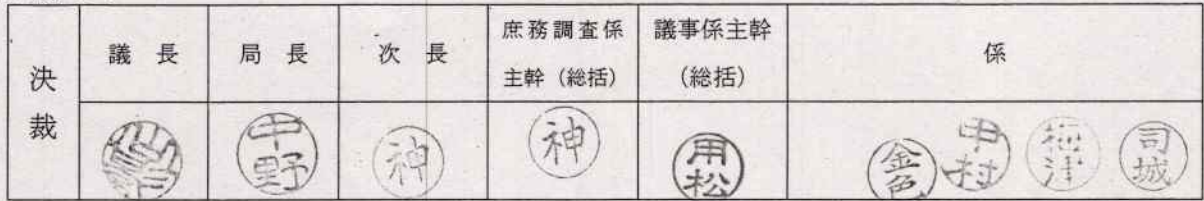 決裁
議長
局長
次長
庶務調査係
主幹（総括）
議事係主幹
（総括）
係
中野
神
神
用松
金色
中村
梅津
司城